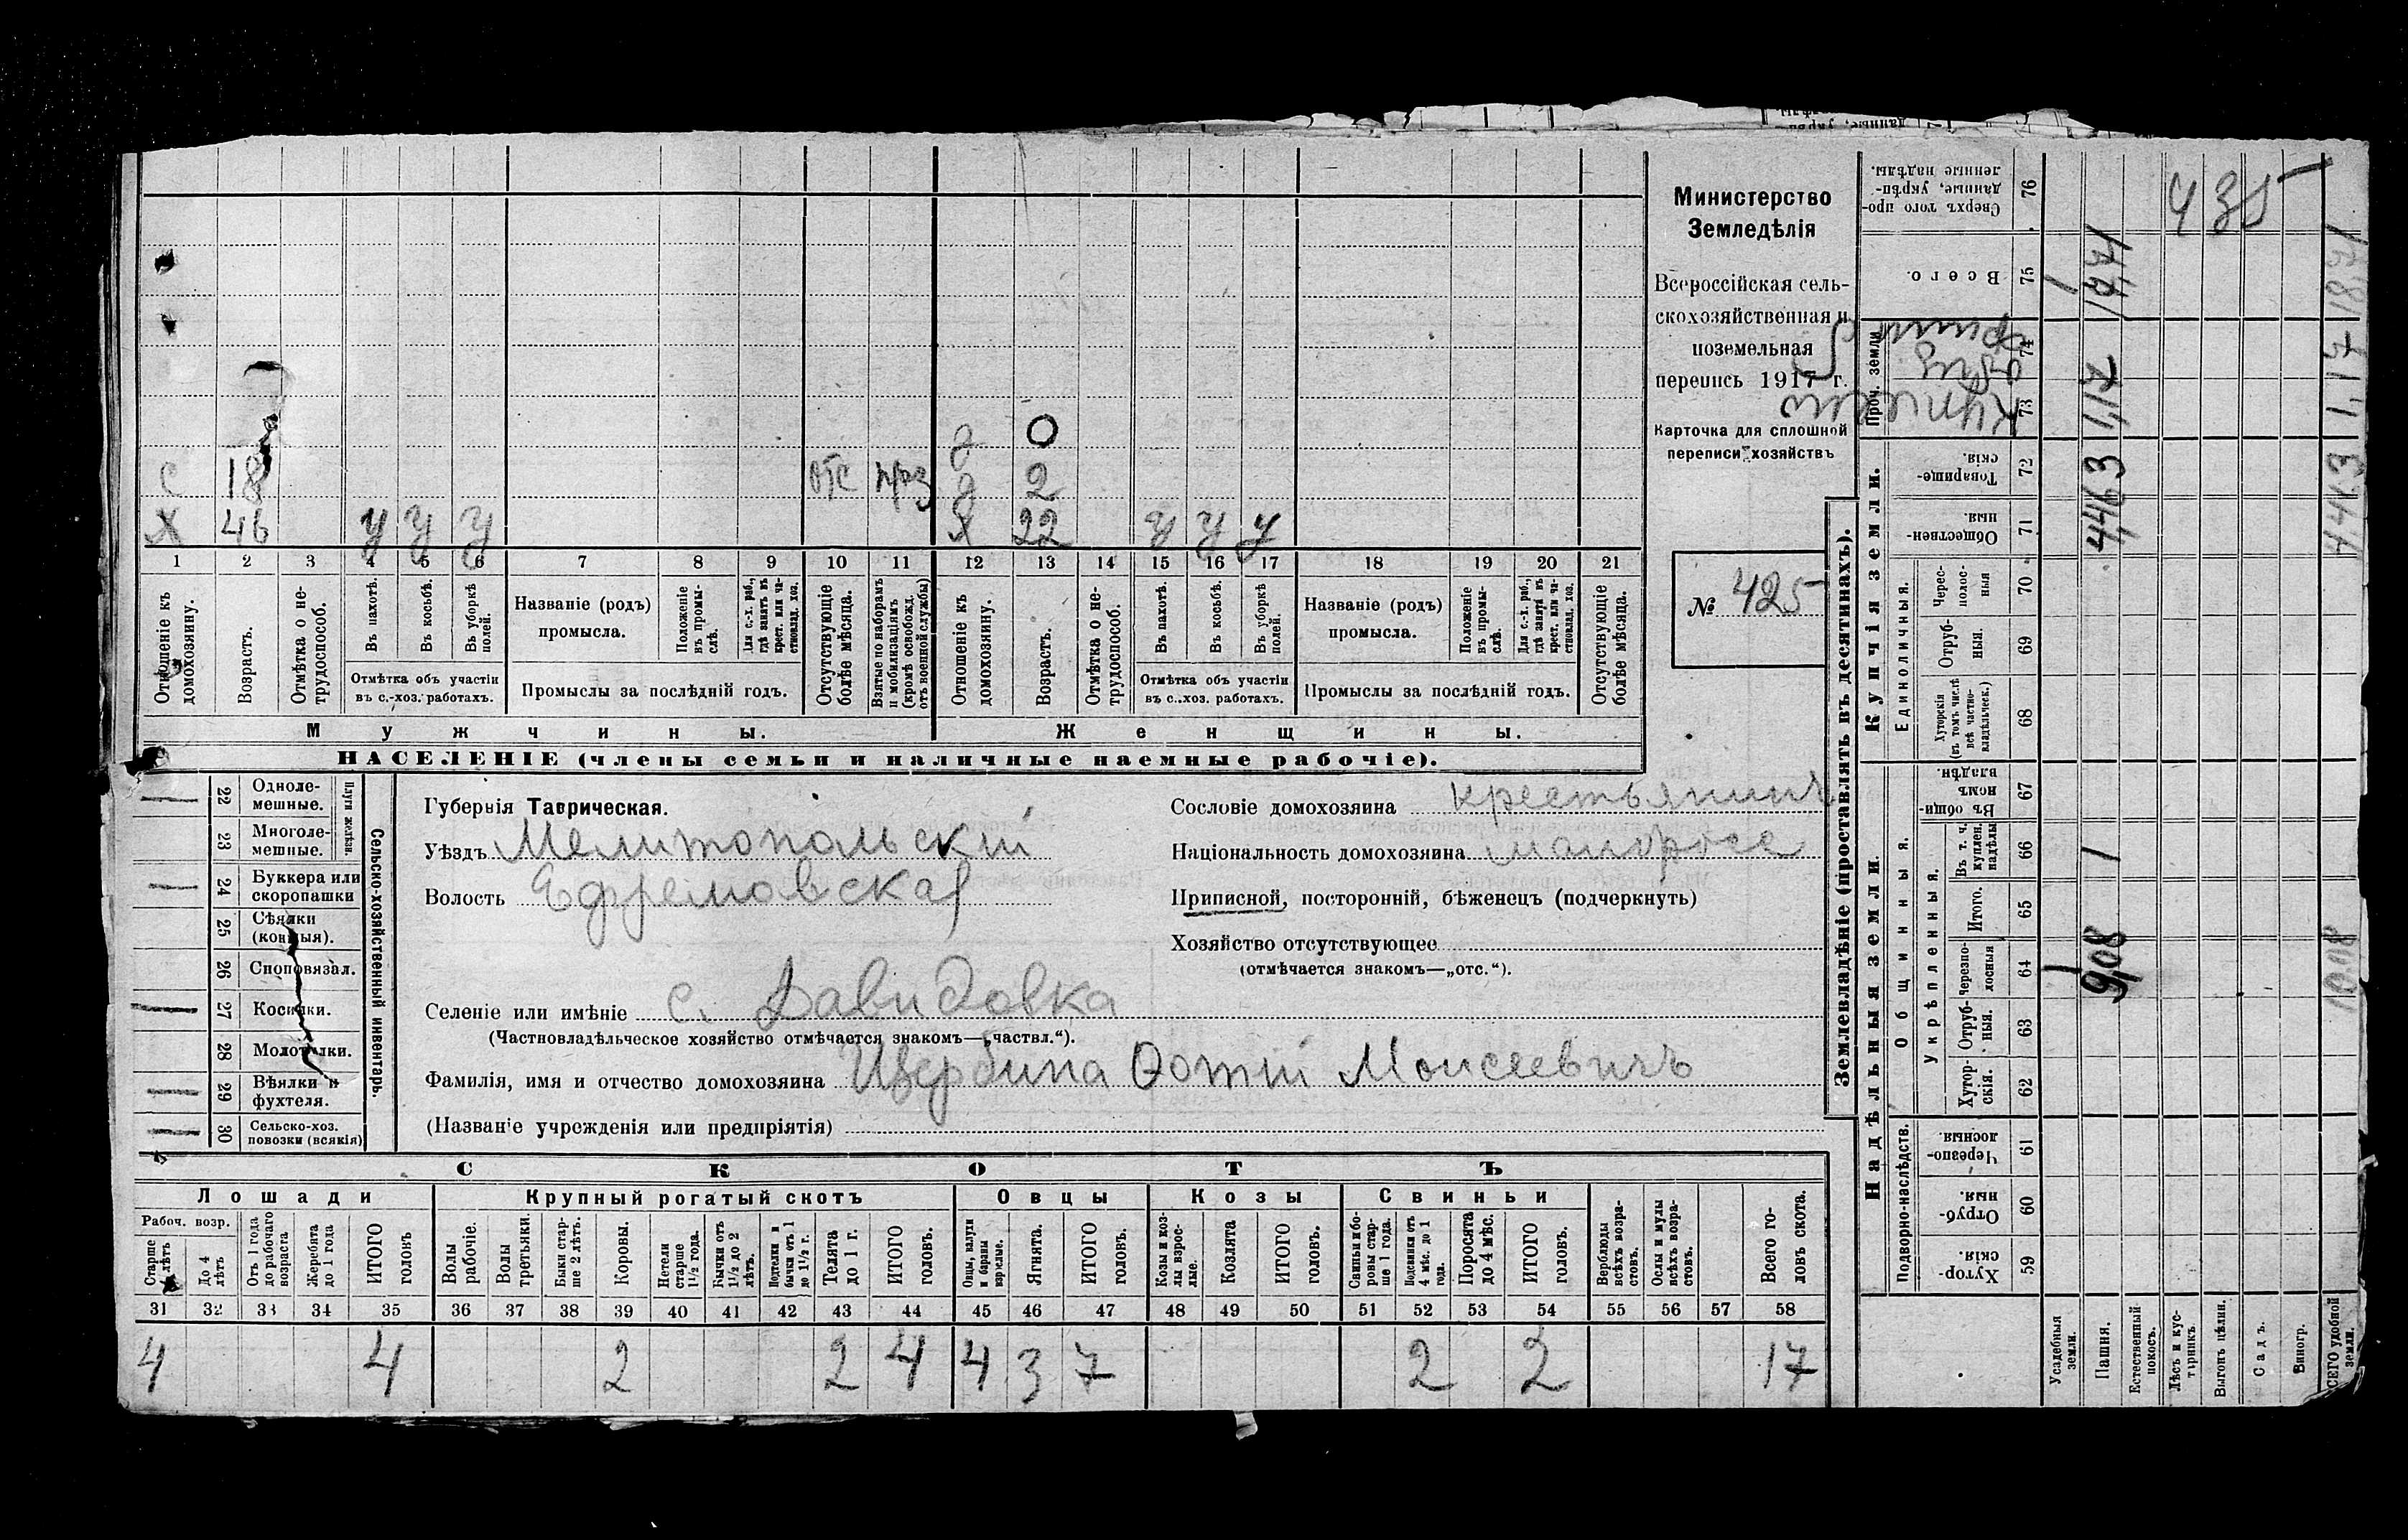 Министерство
Земледѣлія
Всероссійская сель-
скохозяйственная и
поземельная
перепись 1917 г.
Карточка для сплошной
переписи хозяйствъ
№ 425
д 0
с 18 отс д 2
х 46 у у у х 22 у у у
1 2 3 4 5 6 7 8 9 10 11 12 13 14 15 16 17 18 19 20 21
Отношеніе къ домохозяину.
Возрастъ.
Отмѣтка о не-трудоспособ.
Въ пахотѣ.
Въ косьбѣ.
Въ уборкѣ полей.
Отмѣтка объ участіи
въ с.-хоз. работахъ.
Названіе (родъ)
промысла.
Положеніе въ промы-слѣ.
Для с.-х. раб., гдѣ занятъ въ крест. или ча-стновлад. хоз.
Промыслы за послѣдній годъ.
Отсутствующіе болѣе мѣсяца.
Взятые по наборамъ и мобилизаціямъ (кромѣ освобожд. отъ военной службы)
Отношеніе къ домохозяину.
Возрастъ.
Отмѣтка о не-трудоспособ.
Въ пахотѣ.
Въ косьбѣ.
Въ уборкѣ полей.
Отмѣтка объ участіи
въ с.-хоз. работахъ.
Названіе (родъ)
промысла.
Положеніе въ промы-слѣ.
Для с.-х. раб., гдѣ занята въ крест. или ча-стновлад. хоз.
Промыслы за послѣдній годъ.
Отсутствующіе болѣе мѣсяца.
Мужчины. Женщины.
НАСЕЛЕНІЕ (члены семьи и наличные наемные рабочіе).
Сельско-хозяйственный инвентарь.
Плуги желѣзн.
22 Одноле-мешные.
23 Многоле-мешные.
24 Буккера или скоропашки
25 Сѣялки (конныя).
26 Сноповязал.
27 Косилки.
28 Молотилки.
29 Вѣялки и фухтеля.
30 Сельско-хоз. повозки (всякія)
Губернія Таврическая.
Уѣздъ Мелитопольскій
Волость Ефремовская
Сословіе домохозяина крестьянинъ
Національность домохозяина малоросс
Приписной, посторонній, бѣженецъ (подчеркнуть)
Хозяйство отсутствующее
(отмѣчается знакомъ—„отс.“).
Селеніе или имѣніе с. Давидовка
(Частновладѣльческое хозяйство отмѣчается знакомъ—„частвл.“).
Фамилія, имя и отчество домохозяина Щербина Фотій Моисеевичъ
(Названіе учрежденія или предпріятія)
СКОТЪ
Лошади Крупный рогатый скотъ Овцы Козы Свиньи
Рабоч. возр.
Старше 4 лѣтъ
До 4 лѣтъ
Отъ 1 года до рабочаго возраста
Жеребята до 1 года
ИТОГО головъ
Волы рабочіе.
Волы третьяки.
Быки стар-ше 2 лѣтъ.
Коровы.
Нетели старше 1½ года.
Бычки отъ 1½ до 2 лѣтъ.
Подтелки и бычки отъ 1 до 1½ г.
Телята до 1 г.
ИТОГО головъ.
Овцы, валухи и бараны взрослые.
Ягнята.
ИТОГО головъ.
Козы и коз-лы взрос-лые.
Козлята
ИТОГО головъ.
Свиньи и бо-ровы стар-ше 1 года.
Подсвинки отъ 4 мѣс. до 1 года.
Поросята до 4 мѣс.
ИТОГО головъ.
Верблюды всѣхъ возра-стовъ.
Ослы и мулы всѣхъ возра-стовъ.
Всего го-ловъ скота.
31 32 33 34 35 36 37 38 39 40 41 42 43 44 45 46 47 48 49 50 51 52 53 54 55 56 57 58
4 4 2 2 4 4 3 7 2 2 17
Землевладѣніе (проставлять въ десятинахъ).
Надѣльныя земли. Купчія земли. Проч. земли
Подворно-наслѣдств.
Общинныя.
Укрѣпленныя.
Единоличныя.
Хутор-скія. 59
Отруб-ныя. 60
Черезпо-лосныя. 61
Хутор-скія. 62
Отруб-ныя. 63
Черезпо-лосныя 64
Итого. 65
Въ т. ч. куплен. надѣлы 66
Въ общи-номъ владѣн. 67
Хуторскія (въ томъ числѣ всѣ частно-владѣльческ.) 68
Отруб-ныя. 69
Черес-полос-ныя 70
Обществен-ныя. 71
Товарище-скія. 72
73
74
Всего. 75
Сверхъ того про-данные, укрѣп-ленные надѣлы. 76
Усадебныя земли. 1 1
Пашня. 9,08 4463 1,17 1771
Естественный покосъ.
Лѣсъ и кус-тарникъ.
Выгонъ цѣлин.
Садъ.
Виногр.
ВСЕГО удобной земли. 10,08 1,17 1871
435